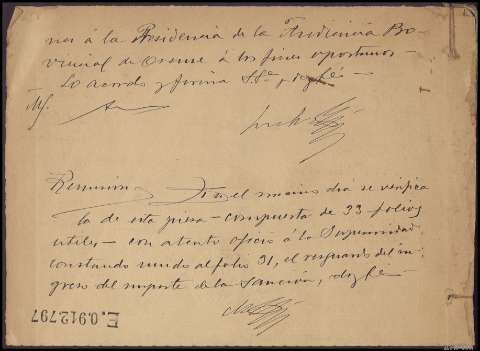 nes á la Presidencia de la Audiencia Pro-
vincial de Orense á los fines oportunos —
— Lo acordó y firma S.Sª, doy fé —
M/.
Remisión En el mismo día se verifica
la de esta pieza — compuesta de 33 folios
utiles — con atento oficio á la Superioridad,
constando unido al folio 31, el resguardo del in-
greso del importe de la Sanción, doy fé —
E.0.912797